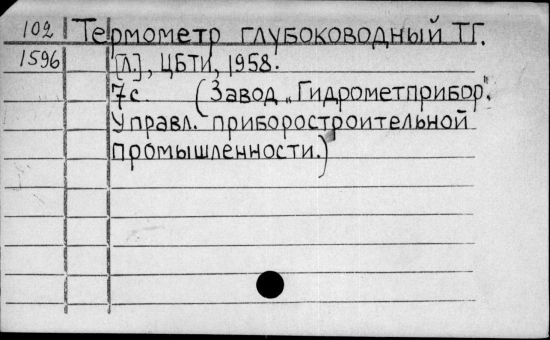 102 Термометр глубоководный ТГ.
1596 [Л], ЦБТИ, 1958.
7с. (Завод „Гидрометприбор".
Управл. приборостроительной
промышленности.)